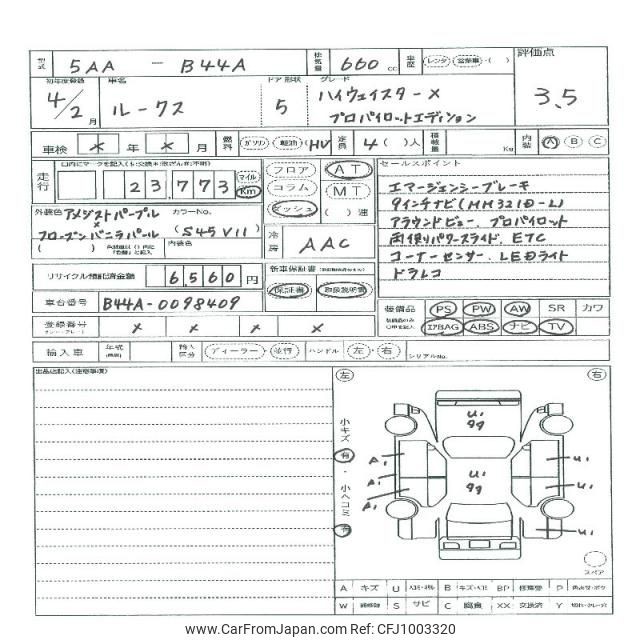 型式 5AA - B44A 排気量 660 cc 車歴 レンタ 営業車 ( ) 評価点
初年度登録 車名 ドア 形状 グレード
4/2月 ルークス 5 ハイウェイスターX 3.5
プロパイロットエディション
車検 × 年 × 月 燃料 ガソリン 軽油 (HV 定員 4 ( )人 積載量 Kg 内装 A B C
走行 23,773 マイル Km フロア AT セールスポイント
コラム MT エマージェンシーブレーキ
ダッシュ ( )速 9インチナビ(MM321D-L)
外装色 アメジストパープル カラーNo. アラウンドビュー、プロパイロット
× (S45V11) 冷房 AAC 両側パワースライド、ETC
フローズンバニラパール 内装色 コーナーセンサー、LEDライト
リサイクル預託済金額 6,560円 新車保証書 ドラレコ
保証書 取扱説明書
車台番号 B44A-0098409 装備品 PS PW AW SR カワ
登録番号 × × × × エアBAG ABS ナビ TV
輸入車 年式 輸入区分 ディーラー・並行 ハンドル 左・右 シリアルNo.
出品店記入(注意事項) 左 右
小キズ 有・小ヘコミ 有
U1
99
A1 U1
A1 U1
99 U1
A1 U1
スペア
A キズ U B キズ・ヘコミ BP P
W S サビ C 腐食 XX 交換済 Y
www.CarFromJapan.com @CFJ1003320